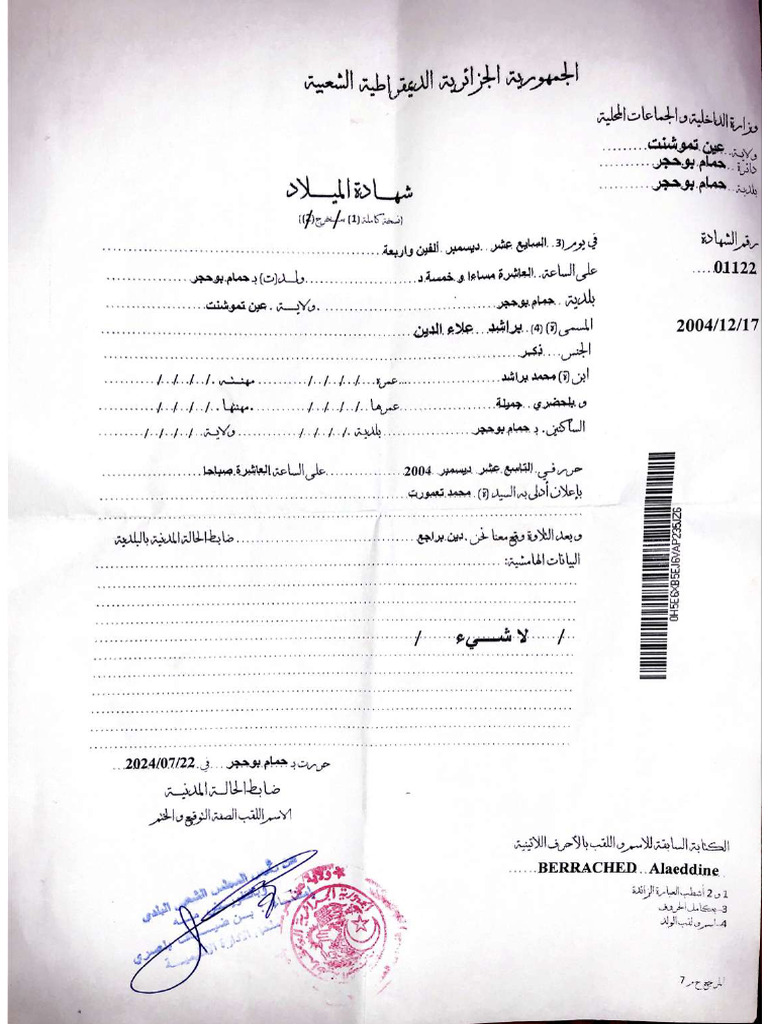 الجمهورية الجزائرية الديمقراطية الشعبية
وزارة الداخلية و الجماعات المحلية
ولاية..عين تموشنت
دائرة..حمام بوحجر
بلدية..حمام بوحجر
شهادة الميلاد
(نسخة كاملة (1) مستخرج (2))
رقم الشهادة
01122
2004/12/17
في يوم (3..السابع عشر..ديسمبر..ألفين واربعة
على الساعة..العاشرة مساءا و خمسة د ولد(ت) بـ حمام بوحجر
بلدية ..حمام بوحجر ولاية ..عين تموشنت
المسمى(ة) (4)..براشد علاء الدين
الجنس..ذكر
ابن (ة) محمد براشد عمره /././././ مهنته /././././
و بلحضري..جميلة عمرها /././././ مهنتها /././././
الساكنين..بـ حمام بوحجر بلدية /././././ ولاية /././././
حرر في..التاسع عشر ديسمبر 2004 على الساعة العاشرة صباحا
بإعلان أدلى به السيد (ة) محمد تعمورت
و بعد التلاوة وقع معنا نحن..دين براجع ضابط الحالة المدنية بالبلدية
البيانات الهامشية:
/ لا شـــيء /
0H5E6XB5EJ6VAP235JZ6
حررت بـ حمام بوحجر في 2024/07/22
ضابط الحالة المدنية
الاسم اللقب الصفة التوقيع و الختم
عن رئيس المجلس الشعبي البلدي
الكتابة السابقة للاسم و اللقب بالأحرف اللاتينية
BERRACHED Alaeddine
1 و 2 أشطب العبارة الزائدة
3-بكامل الحروف
4-اسم و لقب الولد
المرجع ح م 7